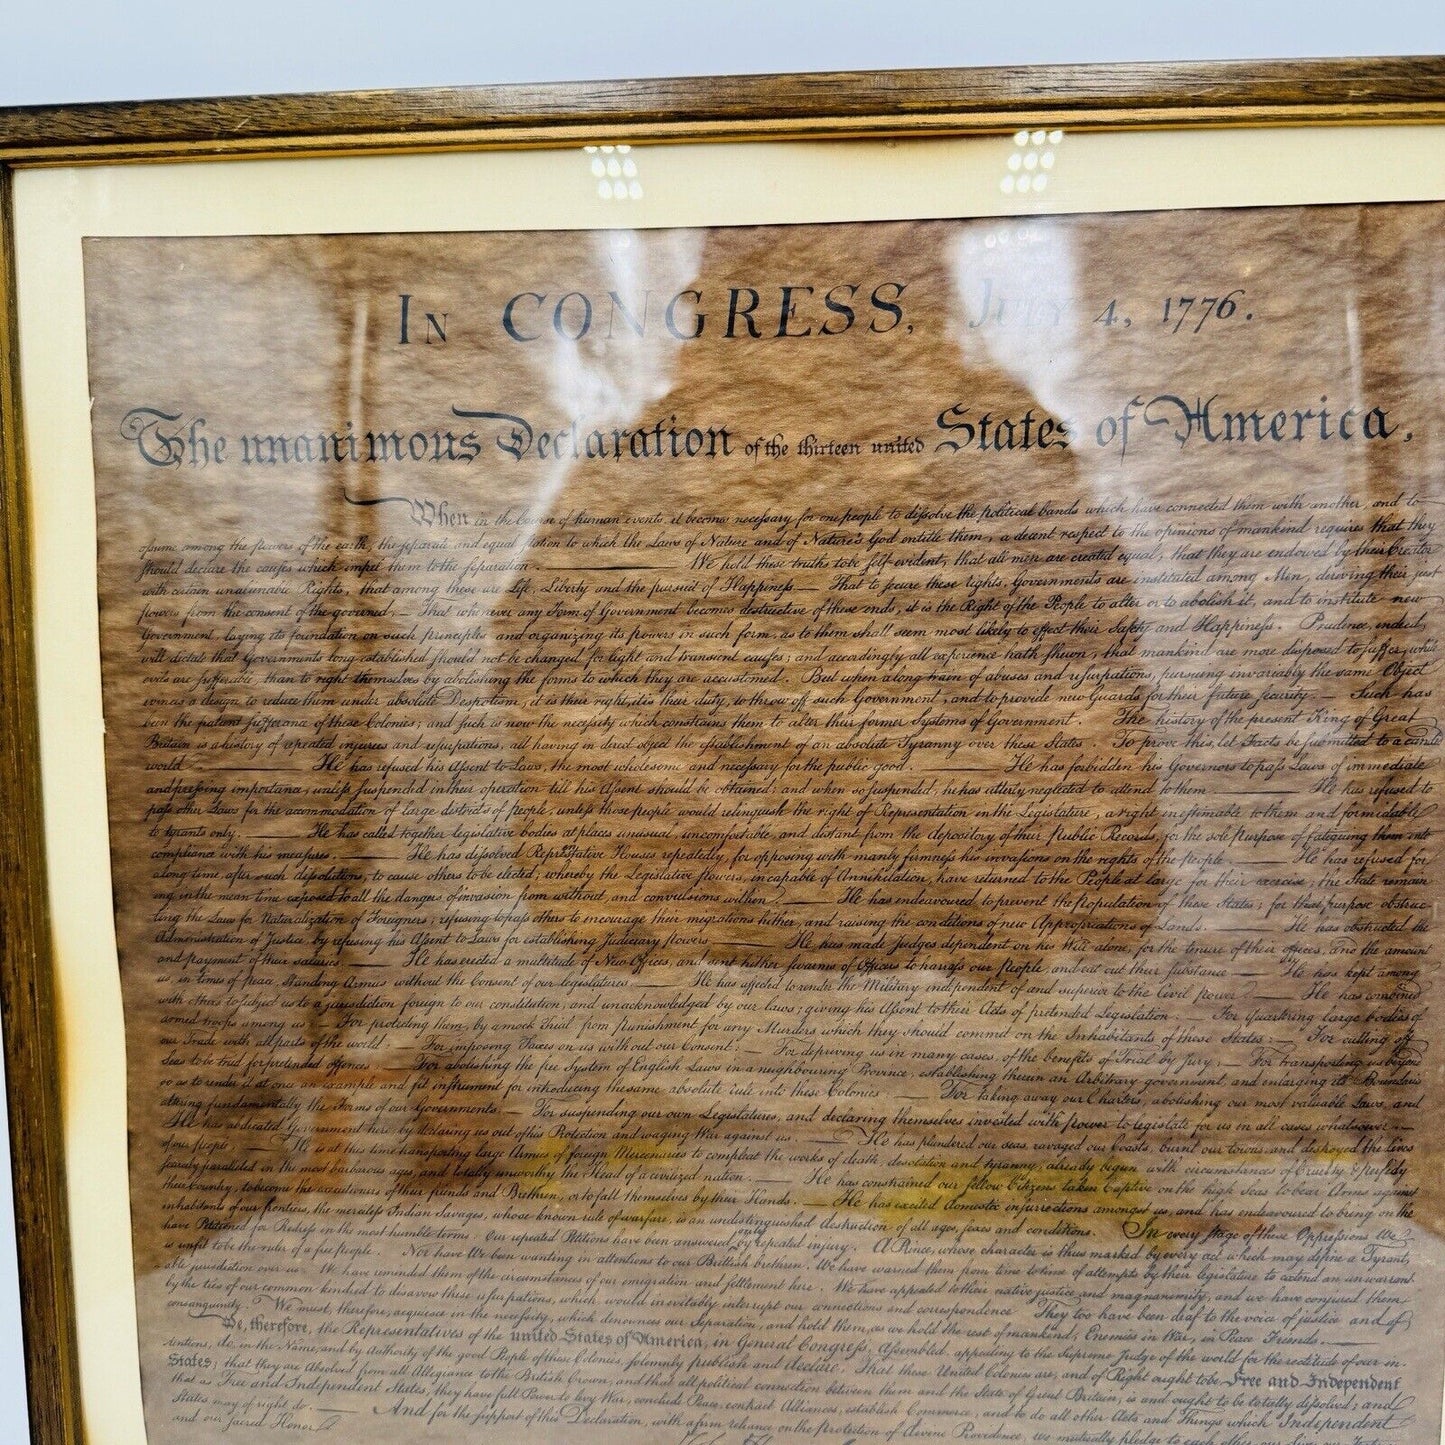 In CONGRESS, July 4, 1776.
The unanimous Declaration of the thirteen united States of America,
When in the Course of human events, it becomes necessary for one people to dissolve the political bands which have connected them with another, and to
assume among the powers of the earth, the separate and equal station to which the Laws of Nature and of Nature's God entitle them, a decent respect to the opinions of mankind requires that they
should declare the causes which impel them to the separation. We hold these truths to be self-evident, that all men are created equal, that they are endowed by their Creator
with certain unalienable Rights, that among these are Life, Liberty and the pursuit of Happiness — That to secure these rights, Governments are instituted among Men, deriving their just
powers from the consent of the governed, — That whenever any Form of Government becomes destructive of these ends, it is the Right of the People to alter or to abolish it, and to institute new
Government, laying its foundation on such principles and organizing its powers in such form, as to them shall seem most likely to effect their Safety and Happiness. Prudence, indeed,
will dictate that Governments long established should not be changed for light and transient causes; and accordingly all experience hath shewn, that mankind are more disposed to suffer, while
evils are sufferable, than to right themselves by abolishing the forms to which they are accustomed. But when a long train of abuses and usurpations, pursuing invariably the same Object
evinces a design to reduce them under absolute Despotism, it is their right, it is their duty, to throw off such Government, and to provide new Guards for their future security. — Such has
been the patient sufferance of these Colonies; and such is now the necessity which constrains them to alter their former Systems of Government. The history of the present King of Great
Britain is a history of repeated injuries and usurpations, all having in direct object the establishment of an absolute Tyranny over these States. To prove this, let Facts be submitted to a candid
world. — He has refused his Assent to Laws, the most wholesome and necessary for the public good. — He has forbidden his Governors to pass Laws of immediate
and pressing importance, unless suspended in their operation till his Assent should be obtained; and when so suspended, he has utterly neglected to attend to them — He has refused to
pass other Laws for the accommodation of large districts of people, unless those people would relinquish the right of Representation in the Legislature, a right inestimable to them and formidable
to tyrants only. — He has called together legislative bodies at places unusual, uncomfortable, and distant from the depository of their Public Records, for the sole Purpose of fatiguing them into
compliance with his measures. — He has dissolved Representative Houses repeatedly, for opposing with manly firmness his invasions on the rights of the people. — He has refused for
a long time, after such dissolutions, to cause others to be elected; whereby the Legislative powers, incapable of Annihilation, have returned to the People at large for their exercise; the State remain
ing in the mean time exposed to all the dangers of invasion from without, and convulsions within. — He has endeavoured to prevent the population of these States; for that purpose obstruc-
ting the Laws for Naturalization of Foreigners; refusing to pass others to encourage their migrations hither, and raising the conditions of new Appropriations of Lands. — He has obstructed the
Administration of Justice, by refusing his Assent to Laws for establishing Judiciary powers. — He has made Judges dependent on his Will alone, for the tenure of their offices, and the amount
and payment of their salaries. — He has erected a multitude of New Offices, and sent hither swarms of Officers to harrass our people, and eat out their substance — He has kept among
us, in times of peace, Standing Armies without the Consent of our legislatures. — He has affected to render the Military independent of and superior to the Civil power. — He has combined
with others to subject us to a jurisdiction foreign to our constitution, and unacknowledged by our laws; giving his Assent to their Acts of pretended Legislation: — For Quartering large bodies of
armed troops among us: — For protecting them, by a mock Trial, from punishment for any Murders which they should commit on the Inhabitants of these States: — For cutting off
our Trade with all parts of the world: — For imposing Taxes on us without our Consent: — For depriving us in many cases, of the benefits of Trial by Jury; — For transporting us beyond
Seas to be tried for pretended offences — For abolishing the free System of English Laws in a neighbouring Province, establishing therein an Arbitrary government, and enlarging its Boundaries
so as to render it at once an example and fit instrument for introducing the same absolute rule into these Colonies — For taking away our Charters, abolishing our most valuable Laws, and
altering fundamentally the Forms of our Governments: — For suspending our own Legislatures, and declaring themselves invested with power to legislate for us in all cases whatsoever. —
He has abdicated Government here, by declaring us out of his Protection and waging War against us. — He has plundered our seas, ravaged our Coasts, burnt our towns, and destroyed the Lives
of our people. — He is at this time transporting large Armies of foreign Mercenaries to compleat the works of death, desolation and tyranny, already begun with circumstances of Cruelty & perfidy
scarcely paralleled in the most barbarous ages, and totally unworthy the Head of a civilized nation. — He has constrained our fellow Citizens taken Captive on the high Seas to bear Arms against
their Country, to become the executioners of their friends and Brethren, or to fall themselves by their Hands. — He has excited domestic insurrections amongst us, and has endeavoured to bring on the
inhabitants of our frontiers, the merciless Indian Savages, whose known rule of warfare, is an undistinguished destruction of all ages, sexes and conditions. In every stage of these Oppressions We
have Petitioned for Redress in the most humble terms: Our repeated Petitions have been answered only by repeated injury. A Prince, whose character is thus marked by every act which may define a Tyrant,
is unfit to be the ruler of a free people. Nor have We been wanting in attentions to our Brittish brethren. We have warned them from time to time of attempts by their legislature to extend an unwarrant
able jurisdiction over us. We have reminded them of the circumstances of our emigration and settlement here. We have appealed to their native justice and magnanimity, and we have conjured them
by the ties of our common kindred to disavow these usurpations, which, would inevitably interrupt our connections and correspondence They too have been deaf to the voice of justice and of
consanguinity. We must, therefore, acquiesce in the necessity, which denounces our Separation, and hold them, as we hold the rest of mankind, Enemies in War, in Peace Friends. —
We, therefore, the Representatives of the united States of America, in General Congress, Assembled, appealing to the Supreme Judge of the world for the rectitude of our in-
tentions, do, in the Name, and by Authority of the good People of these Colonies, solemnly publish and declare, That these United Colonies are, and of Right ought to be Free and Independent
States; that they are Absolved from all Allegiance to the British Crown, and that all political connection between them and the State of Great Britain, is and ought to be totally dissolved; and
that as Free and Independent States, they have full Power to levy War, conclude Peace, contract Alliances, establish Commerce, and to do all other Acts and Things which Independent
States may of right do. — And for the support of this Declaration, with a firm reliance on the Protection of divine Providence, we mutually pledge to each other our
and our sacred Honor